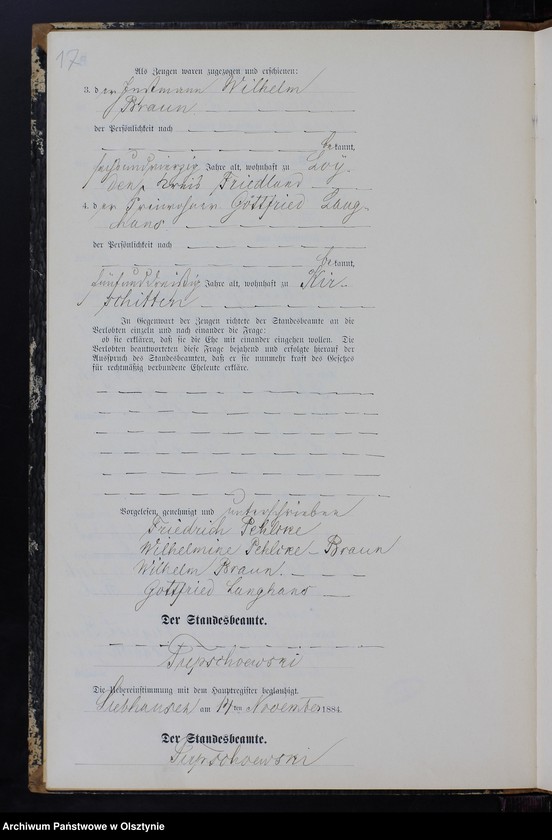 17
Als Zeugen waren zugezogen und erschienen:
3. der Instmann Wilhelm
Braun
der Persönlichkeit nach
bekannt,
sechsundvierzig Jahre alt, wohnhaft zu Loy
den, Kreis Friedland
4. der Gottfried Lang
hans
der Persönlichkeit nach
bekannt,
fünfunddreißig Jahre alt, wohnhaft zu Kir
schitten
In Gegenwart der Zeugen richtete der Standesbeamte an die
Verlobten einzeln und nach einander die Frage:
ob sie erklären, daß sie die Ehe mit einander eingehen wollen. Die
Verlobten beantworteten diese Frage bejahend und erfolgte hierauf der
Ausspruch des Standesbeamten, daß er sie nunmehr kraft des Gesetzes
für rechtmäßig verbundene Eheleute erkläre.
Vorgelesen, genehmigt und unterschrieben
Friedrich
Wilhelmine Braun
Wilhelm Braun.
Gottfried Langhans
Der Standesbeamte.
Die Uebereinstimmung mit dem Hauptregister beglaubigt.
Liebhausen am 14ten November 1884
Der Standesbeamte.
Archiwum Państwowe w Olsztynie